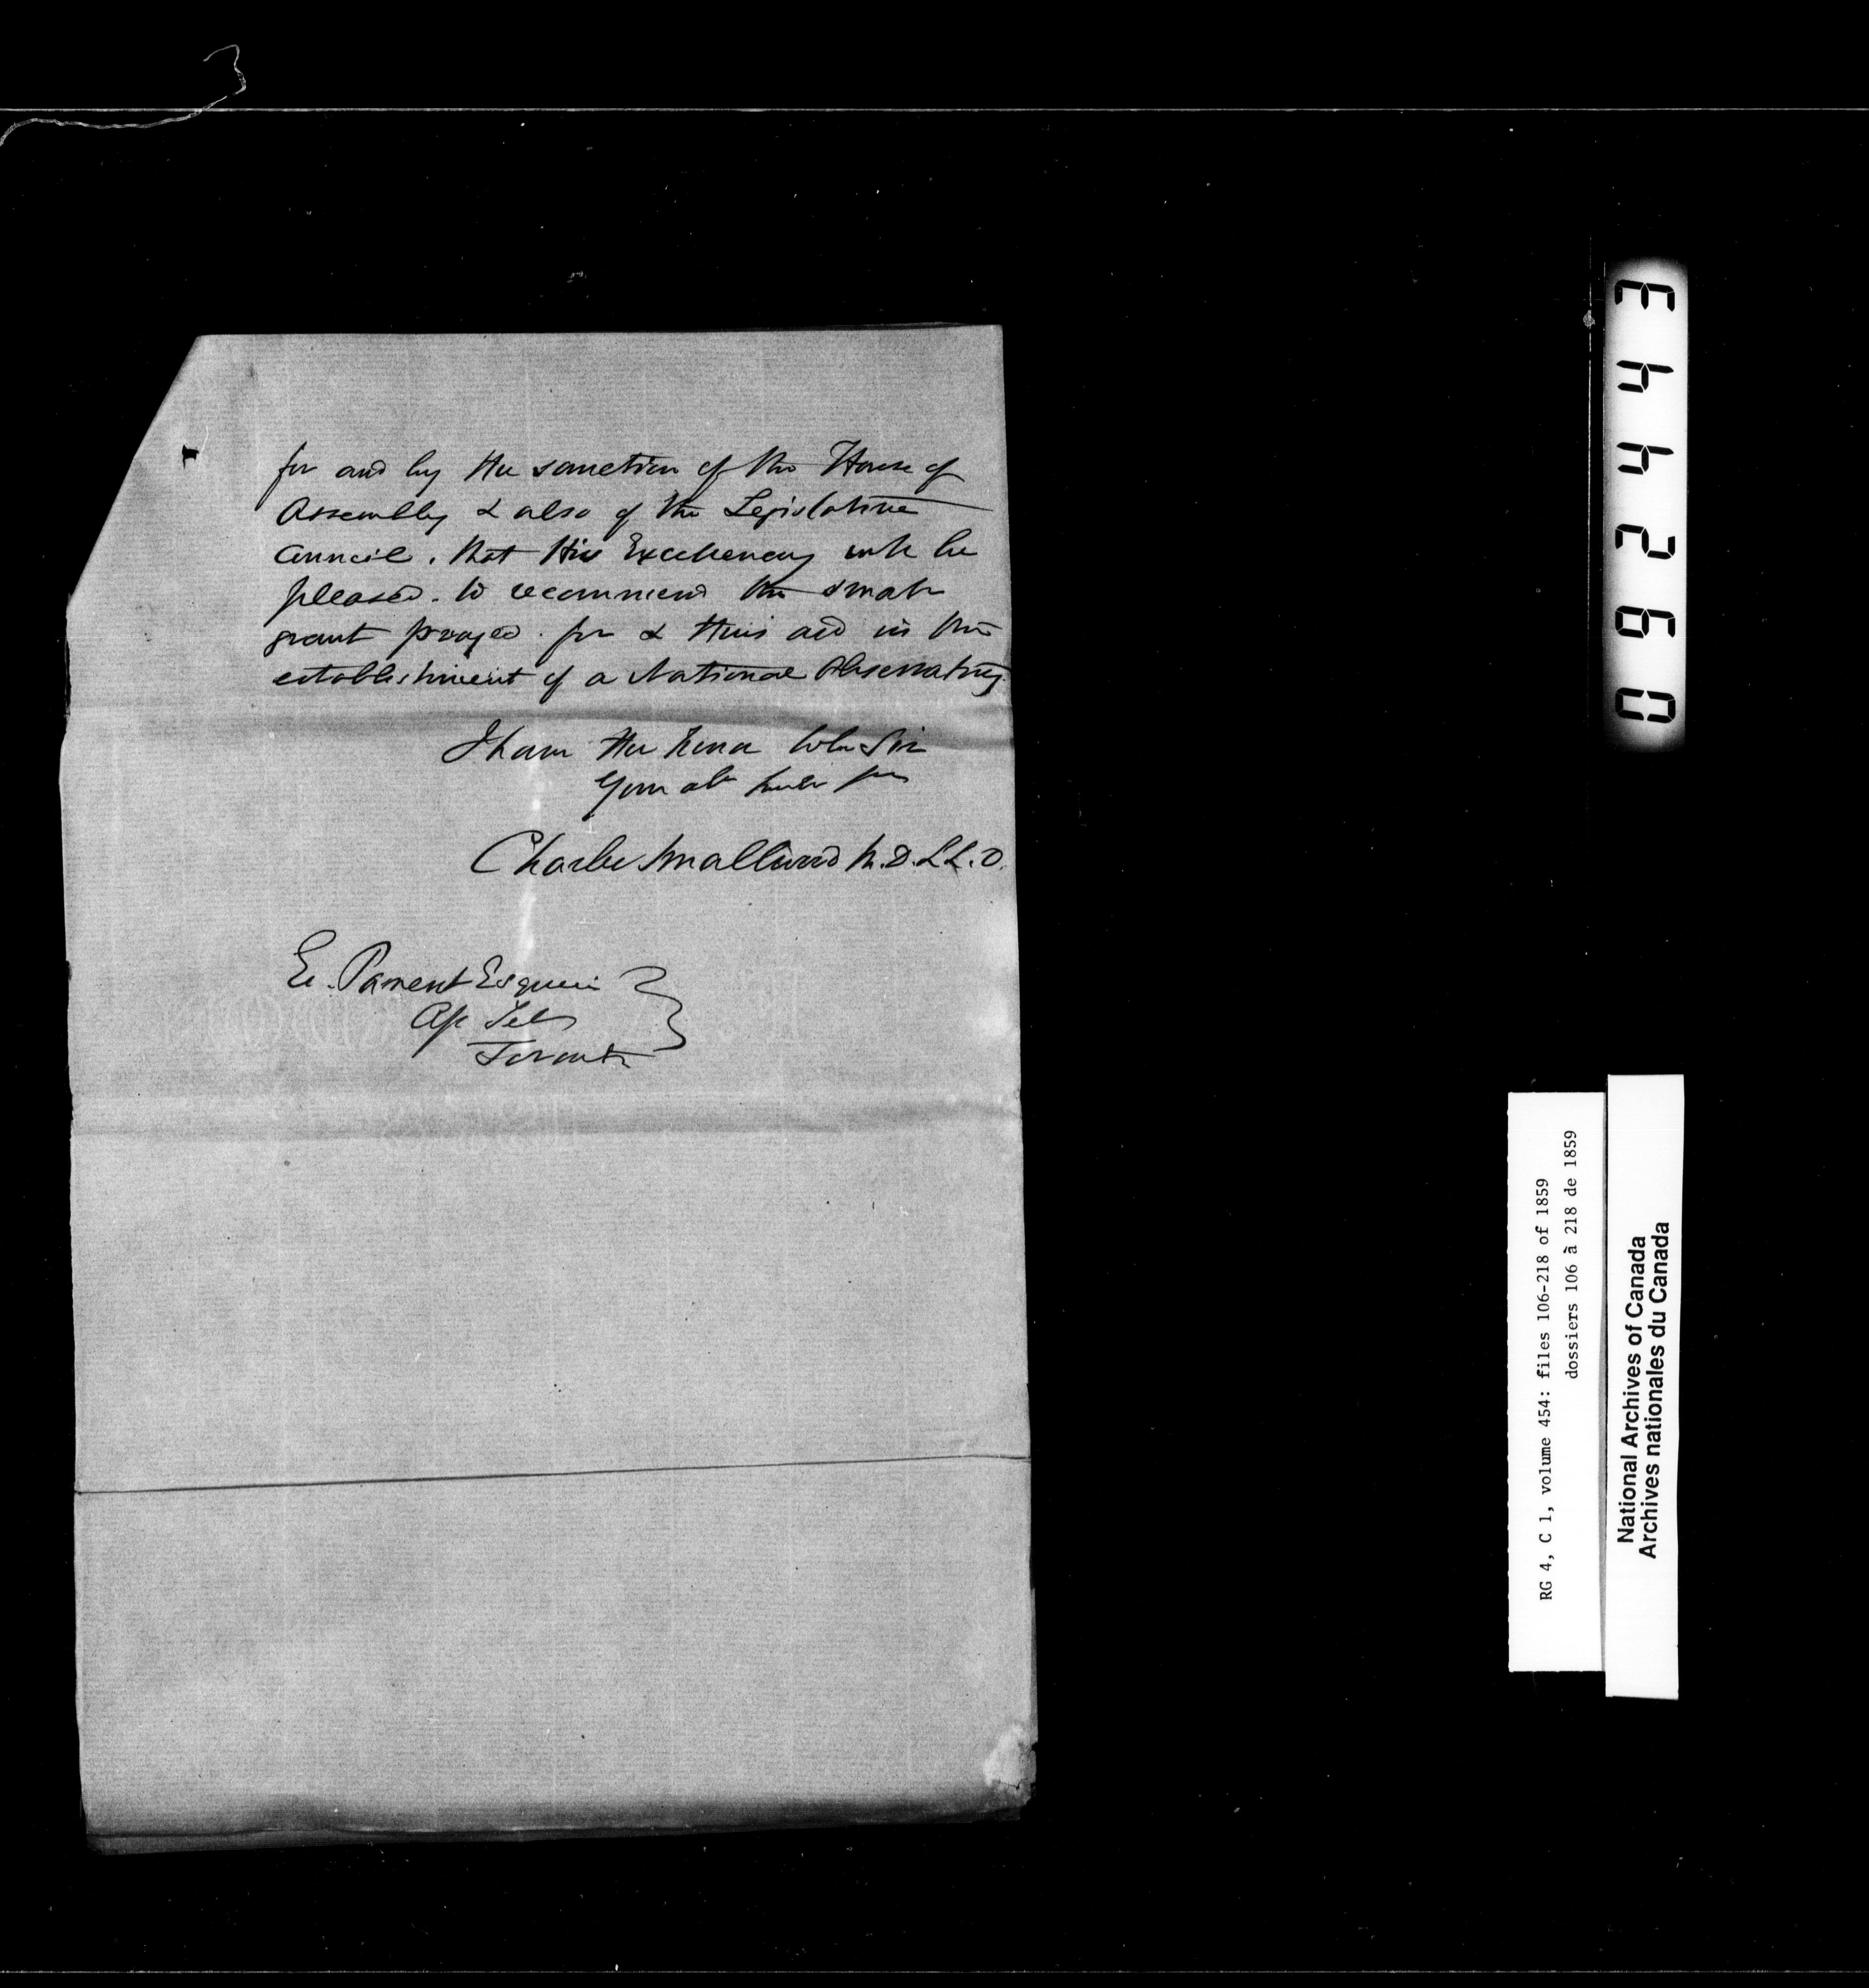 for and by the sanction of the House of
Assembly & also of the Legislative
Council. that His Excellency will be
pleased. to recommend the small
grant prayed. for & thus aid in the
establishment of a National Observatory.
I have the honor to be Sir
Your obt
Charles Smallwood M.D. LL.D.
E. Parent Esquire
Toronto
094443
092443
RG 4, C 1, volume 454: files 106-218 of 1859
dossiers 106 à 218 de 1859
National Archives of Canada
Archives nationales du Canada